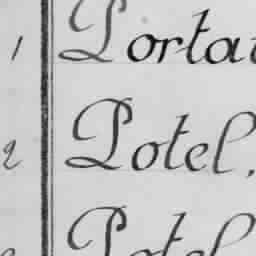 1 Porta
2 Potel.
Potel